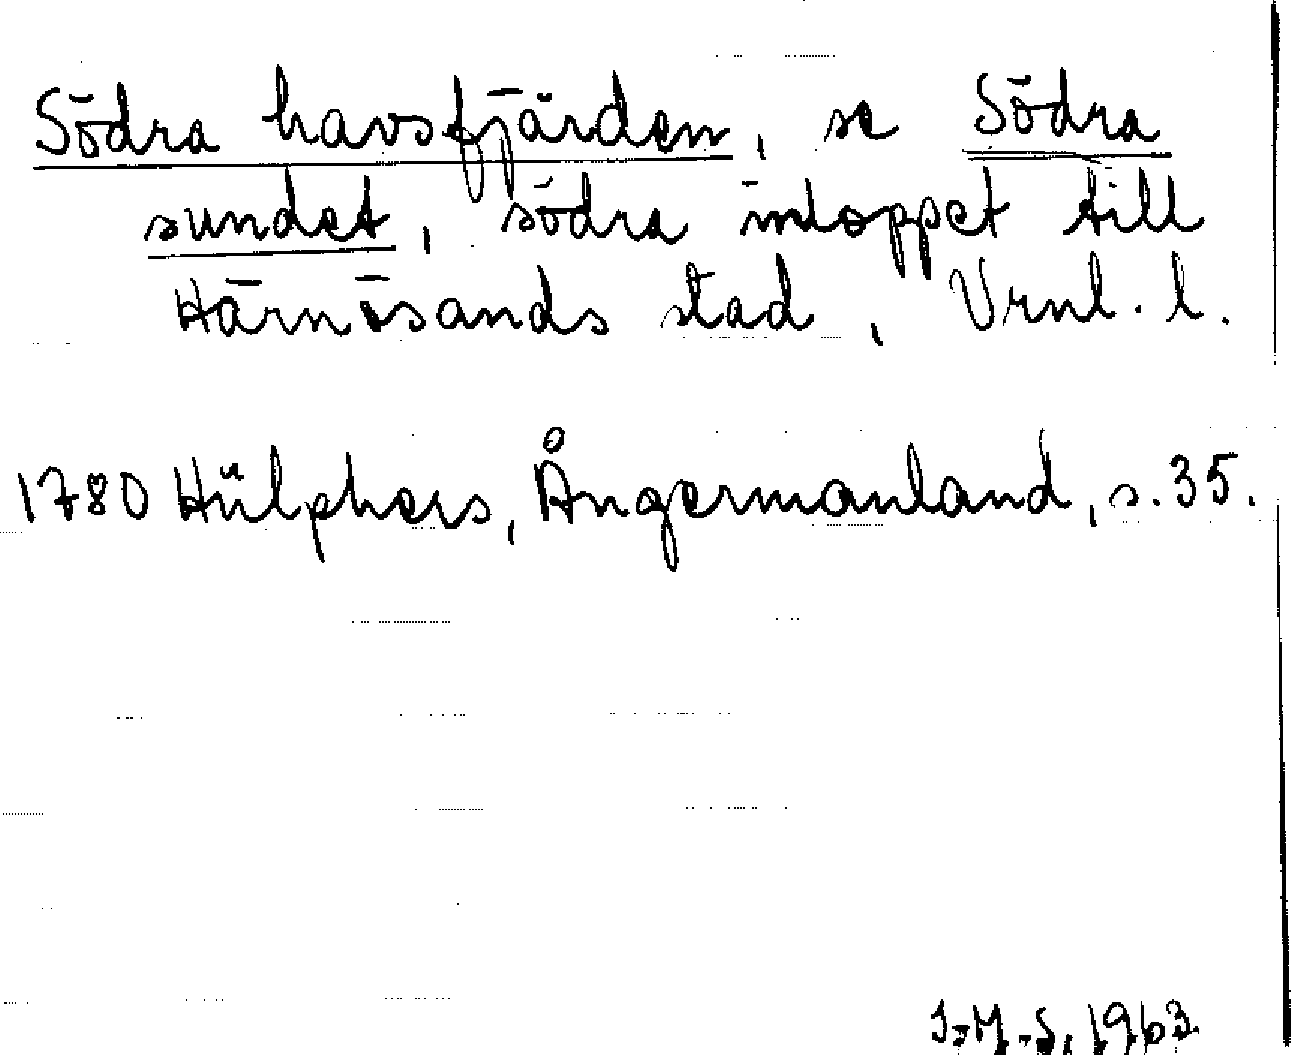 Södra havsfjärden, se Södra
sundet, södra inloppet till
Härnösands stad, Vrnl. l.
1780 Hülphers, Ångermanland, s. 35.
J.-M. S. 1963